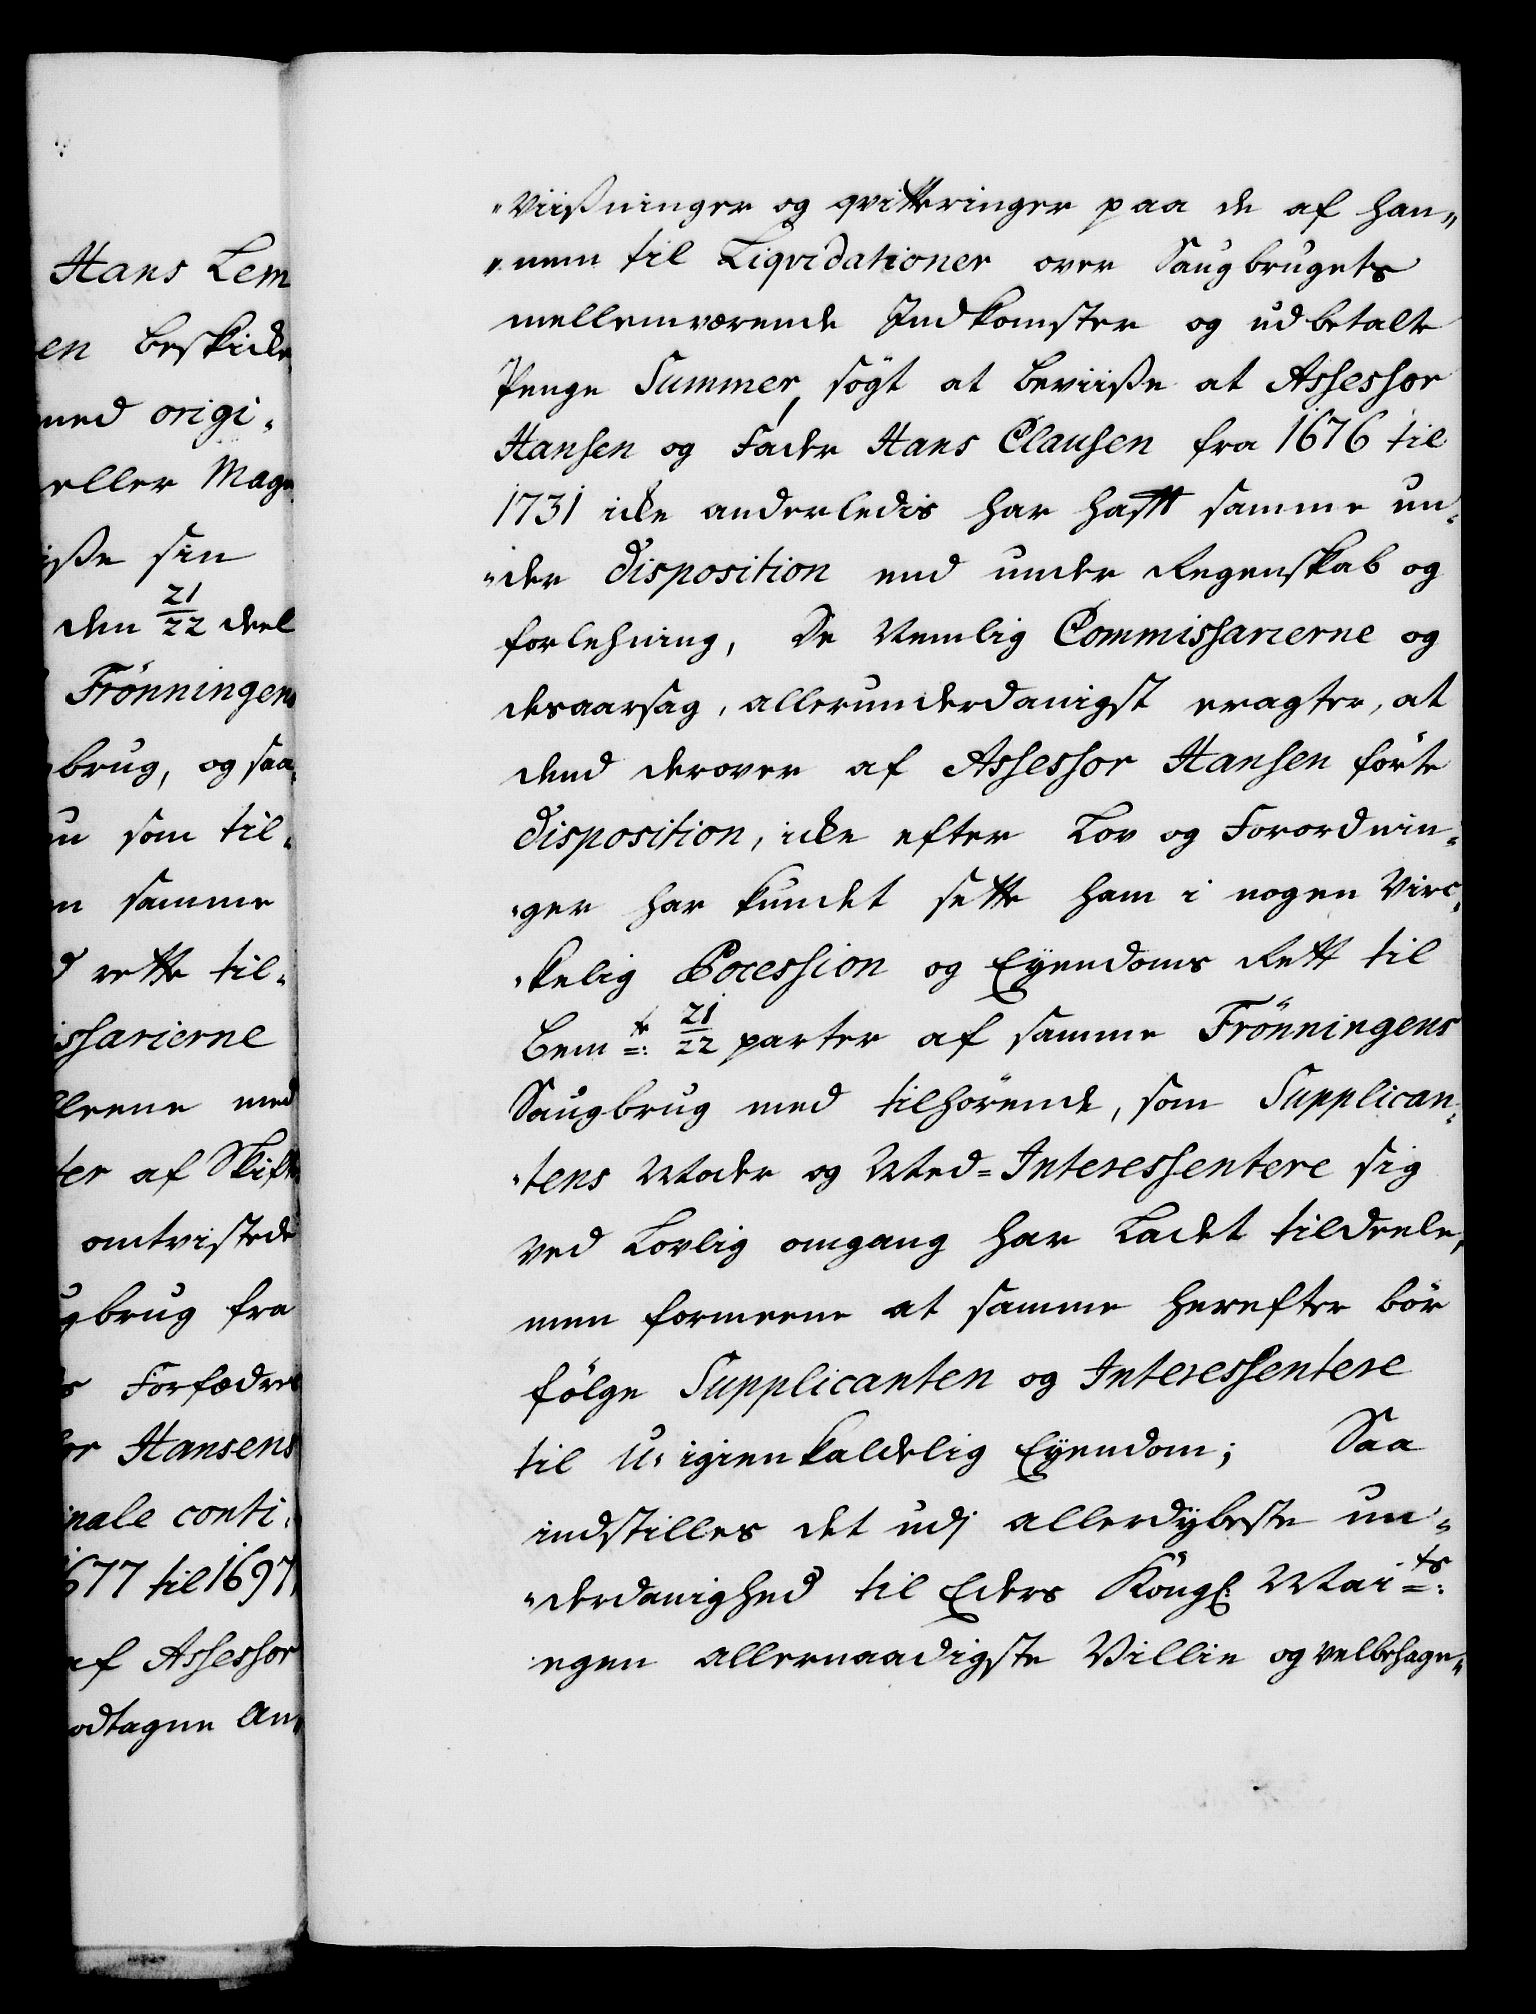 Hans Lem
en beskicke
med origi-
eller Mage
iße sin
den 21/22 deel
Frönningens
brug, og saa-
som til-
samme
rette til-
issarierne
med
ter af Skift
omtvistede
gbrug fra
Forfædres
or Hansens
inale conti-
1677 til 1697
af Assessor
odtagne An-
"viißninger og qvitteringer paa de af han"
"nem til Liqvidationer over Saugbrugets
mellemværende Indkomster og udbetalte
Penge Summer, sögt at beviiße at Assessor
Hansen og Fader Hans Clausen fra 1676 til
1731 icke anderledis har hafft samme un-
"der Disposition end under Regenskab og
forlehning, De Nemlig Commissarierne og
desaarsag, allerunderdanigst eragter, at
dend derover af Assessor Hansen förte
Disposition, icke efter Lov og Forordnin-
"ger har kundet sette ham i nogen Virc-
"kelig Pocession og Eyendoms Rett til
bemte: 21/22 parter af samme Frönningens
Saugbrug med tilhörende, som Supplican-
"tens Moder og Med=Interessentere sig
ved Lovlig omgang har Ladet tildeele,
men formeene at samme herefter bör
fölge Supplicanten og Interessentere
til U-igienkaldelig Eyendom; Saa
indstilles det udj allerdybeste un-
"derdanighed til Eders Kongl: Maits:
egen allernaadigste Villie og velbehage-